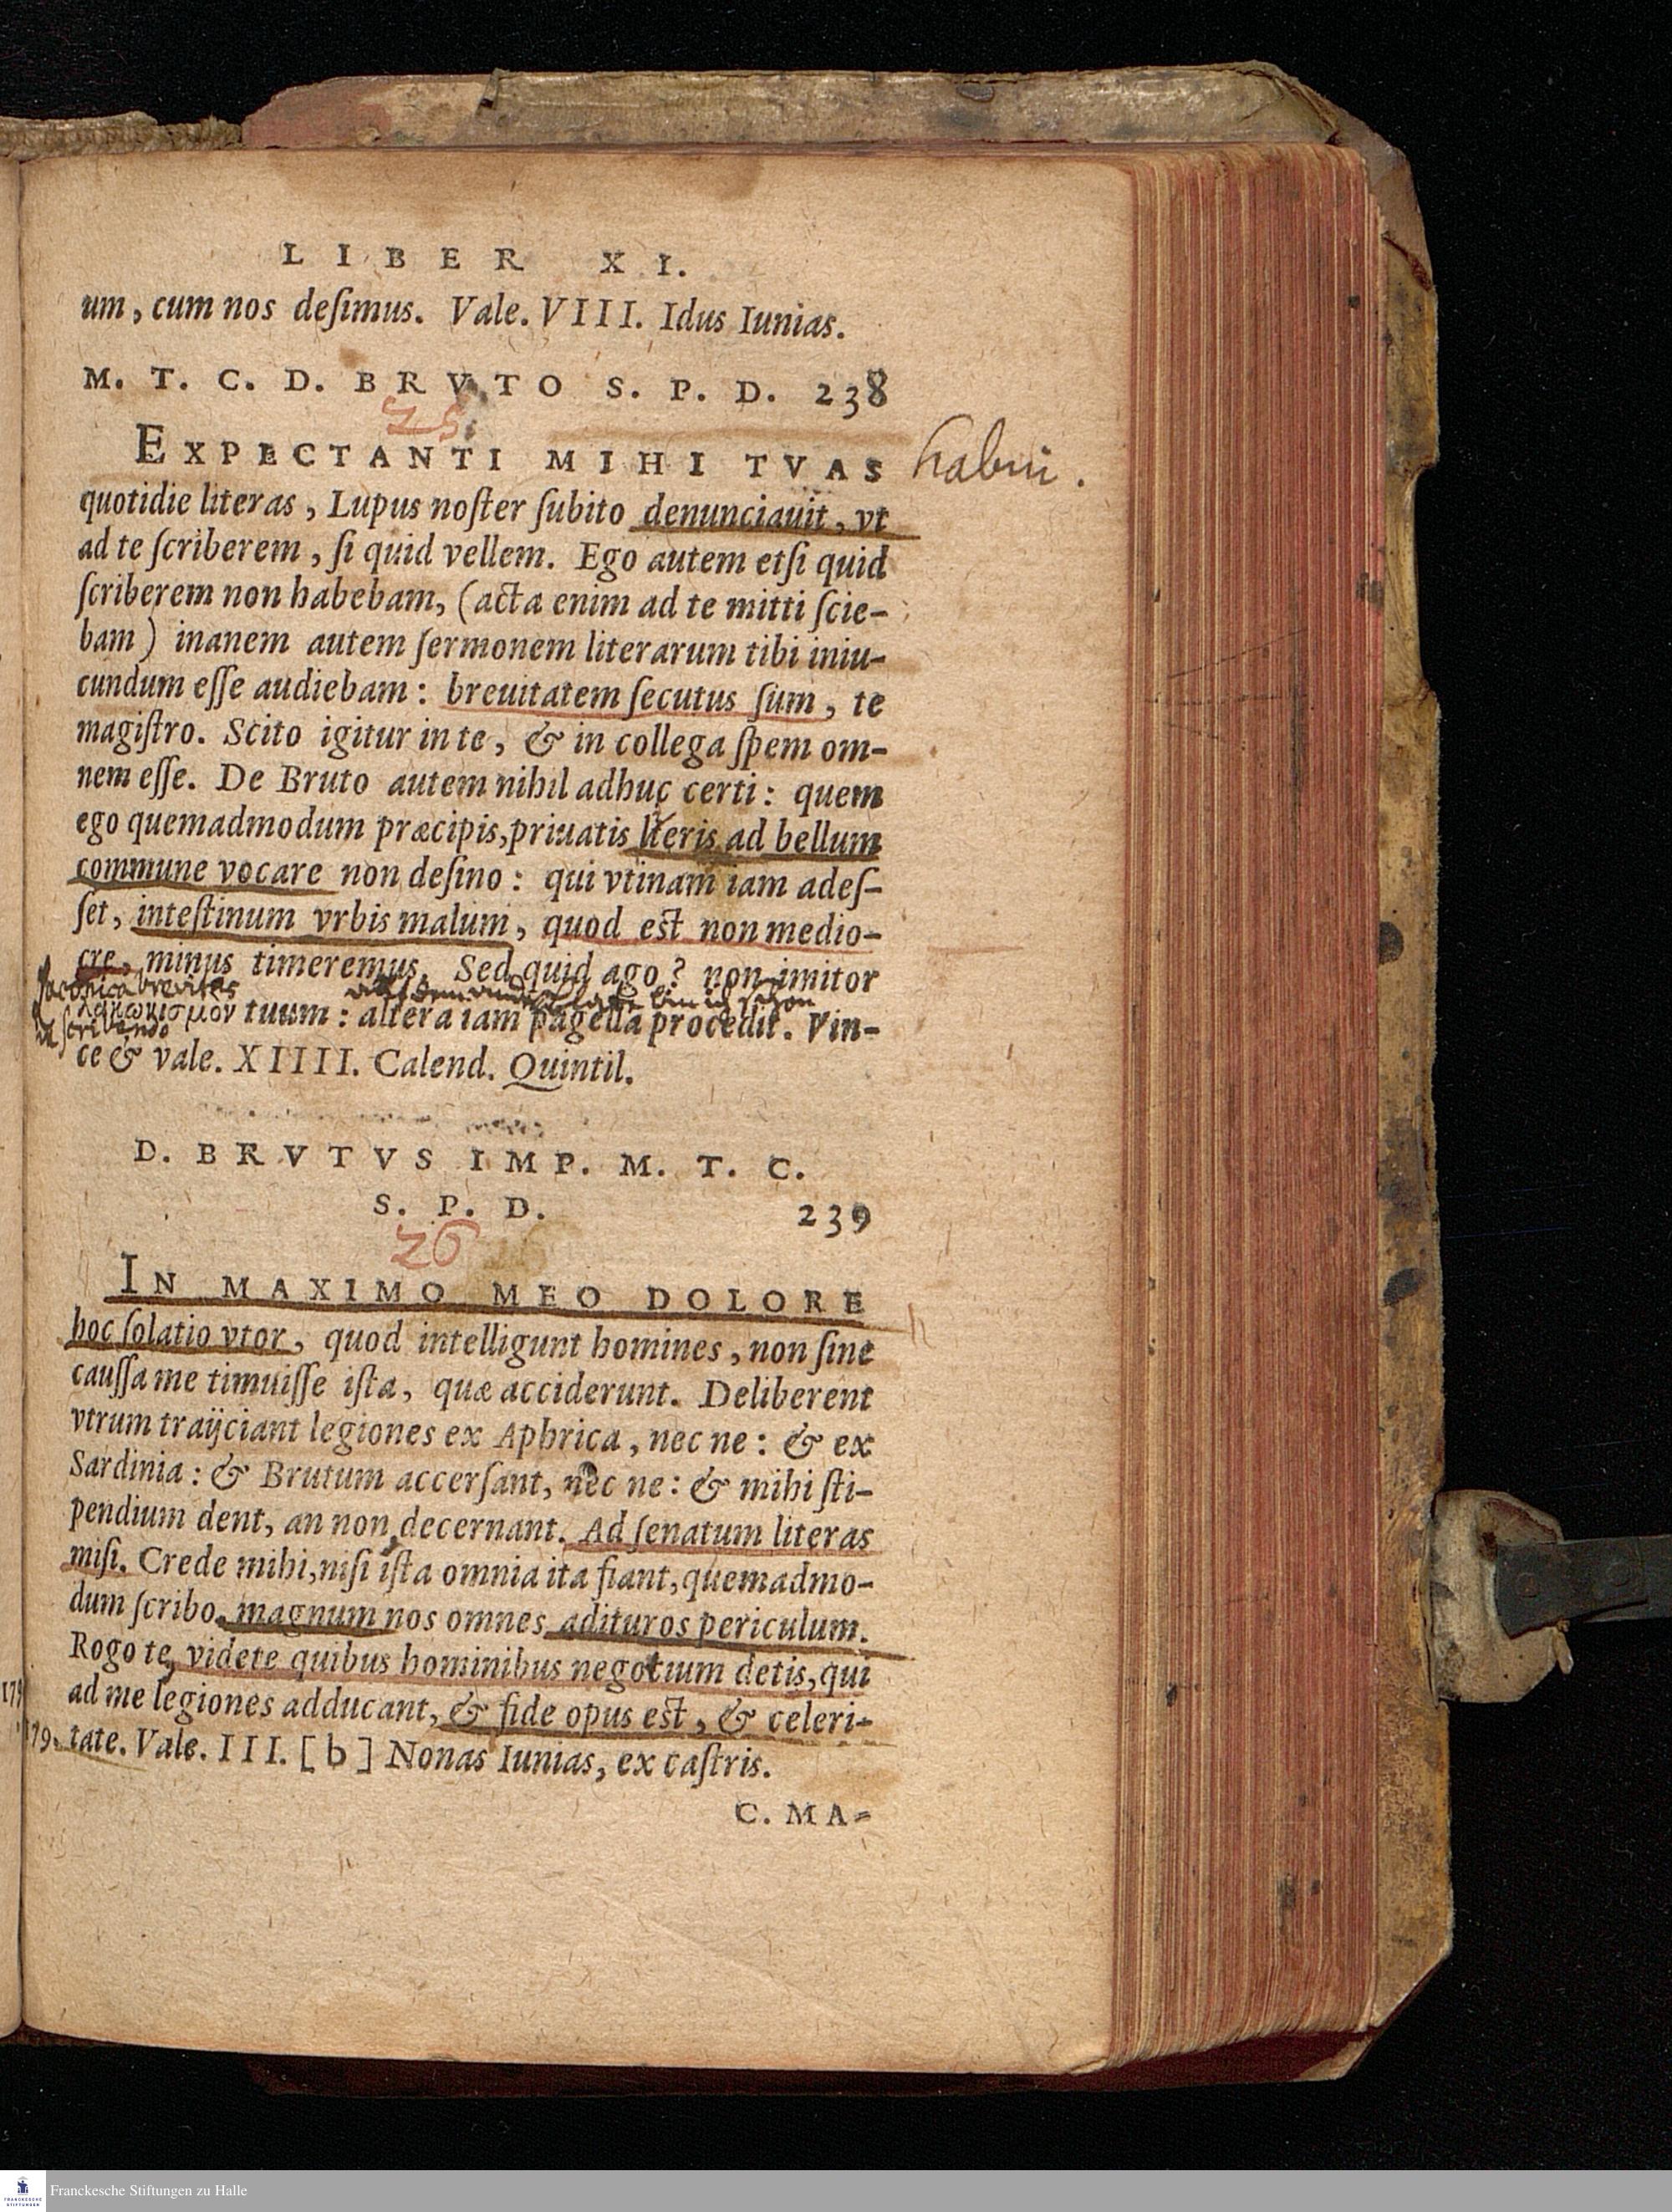 LIBER XI.
um, cum nos deſimus. Vale. VIII. Idus Iunias.
M. T. C. D. BRVTO S. P. D. 238
25
EXPECTANTI MIHI TVAS habui.
quotidie literas, Lupus noſter ſubito denunciauit, vt
ad te ſcriberem, ſi quid vellem. Ego autem etſi quid
ſcriberem non habebam, (acta enim ad te mitti ſcie-
bam) inanem autem ſermonem literarum tibi iniu-
cundum eſſe audiebam: breuitatem ſecutus ſum, te
magiſtro. Scito igitur in te, & in collega ſpem om-
nem eſſe. De Bruto autem nihil adhuc certi: quem
ego quemadmodum præcipis, priuatis literis ad bellum
commune vocare non deſino: qui vtinam iam adeſ-
ſet, inteſtinum vrbis malum, quod eſt non medio-
cre, minus timeremus. Sed quid ago? non imitor
laconica brevitas
λακωνισμὸν tuum: altera iam pagella procedit. Vin-
in ſcribendo
ce & vale. XIIII. Calend. Quintil.
D. BRVTVS IMP. M. T. C.
S. P. D. 239
26
IN MAXIMO MEO DOLORE
hoc ſolatio vtor, quod intelligunt homines, non ſine
cauſſa me timuiſſe iſta, quæ acciderunt. Deliberent
vtrum traijciant legiones ex Aphrica, nec ne: & ex
Sardinia: & Brutum accerſant, nec ne: & mihi ſti-
pendium dent, an non decernant. Ad ſenatum literas
miſi. Crede mihi, niſi iſta omnia ita fiant, quemadmo-
dum ſcribo, magnum nos omnes adituros periculum.
Rogo te, videte quibus hominibus negotium detis, qui
ad me legiones adducant, & fide opus eſt, & celeri-
179. tate. Vale. III. [b] Nonas Iunias, ex caſtris.
C. MA-
Franckesche Stiftungen zu Halle